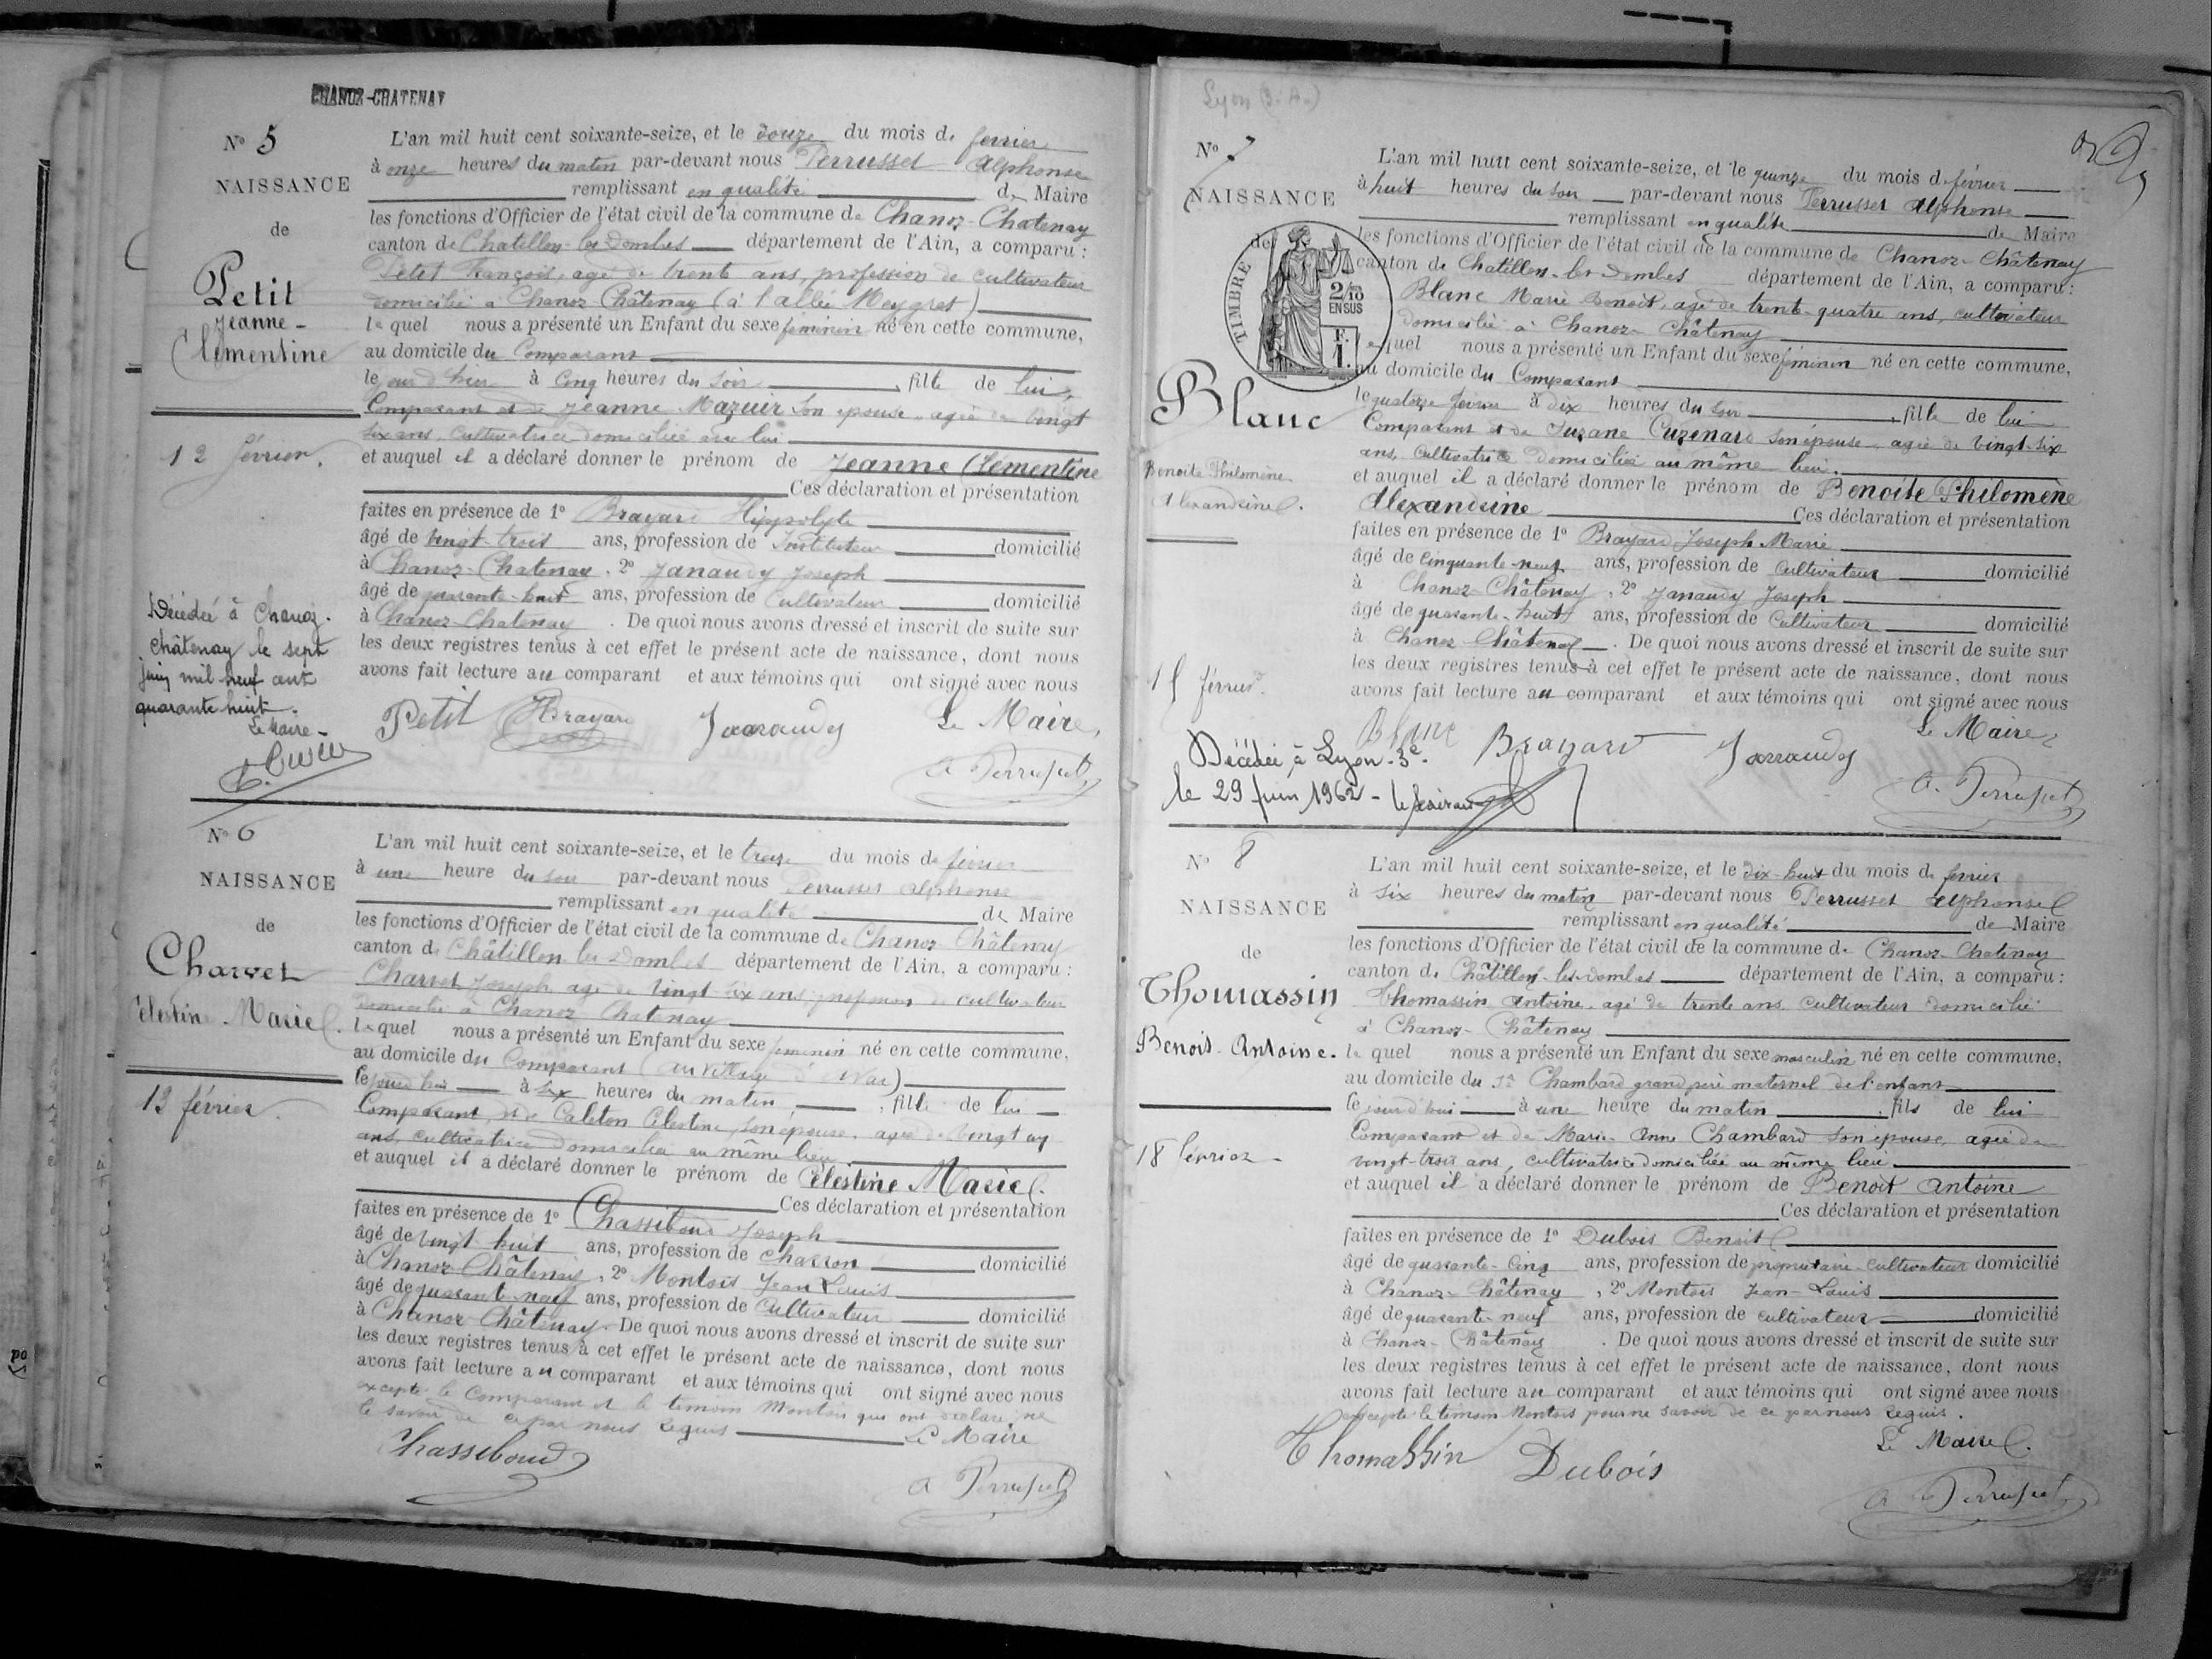 CHANOZ-CHATENAY
N° 5
NAISSANCE
de
Petit
Jeanne-
Clémentine
12 février.
Décédée à Chanoz-
Châtenay le sept
juin mil neuf cent
quarante huit.
Le Maire-
L'an mil huit cent soixante-seize, et le douze du mois de fevrier
à onze heures du matin par-devant nous Perrusset Alphonse
remplissant en qualité de Maire
les fonctions d'Officier de l'état civil de la commune de Chanoz-Chatenay
canton de Chatillon-les-Dombes département de l'Ain, a comparu :
Petit François, agé de trente ans, profession de cultivateur
domicilié à Chanoz Châtenay (à l'allée Meygret)
lequel nous a présenté un Enfant du sexe féminin né en cette commune,
au domicile du Comparant
le jour d'hier à cinq heures du soir, fille de lui,
Comparant et de Jeanne Mazuir son épouse, agée de vingt
six ans, cultivatrice domiciliée avec lui
et auquel il a déclaré donner le prénom de Jeanne Clémentine
Ces déclaration et présentation
faites en présence de 1° Brayard Hippolyte
âgé de vingt-trois ans, profession de Instituteur domicilié
à Chanoz-Chatenay, 2° Janaudy Joseph
âgé de quarante-huit ans, profession de Cultivateur domicilié
à Chanoz-Chatenay. De quoi nous avons dressé et inscrit de suite sur
les deux registres tenus à cet effet le présent acte de naissance, dont nous
avons fait lecture au comparant et aux témoins qui ont signé avec nous
Petit HBrayard Janaudy Le Maire,
A Perrusset
N° 6
NAISSANCE
de
Charvet
Célestine Marie.
13 février.
L'an mil huit cent soixante-seize, et le treize du mois de février
à une heure du soir par-devant nous Perrusset Alphonse
remplissant en qualité de Maire
les fonctions d'Officier de l'état civil de la commune de Chanoz Châtenay
canton de Châtillon les Dombes département de l'Ain, a comparu :
Charvet Joseph agé de vingt-six ans profession de cultivateur
domicilié à Chanoz Chatenay
lequel nous a présenté un Enfant du sexe feminin né en cette commune,
au domicile du Comparant (au village
le jourd'hui à six heures du matin, fille de lui
Comparant, et de Caleton Célestine, son épouse, agée de vingt un
ans, cultivatrice domiciliée au même lieu
et auquel il a déclaré donner le prénom de Célestine Marie.
Ces déclaration et présentation
faites en présence de 1° Chassiboud Joseph
âgé de vingt huit ans, profession de Charron domicilié
à Chanoz Châtenay, 2° Montois Jean Louis
âgé de quarante-neuf ans, profession de Cultivateur domicilié
à Chanoz-Châtenay. De quoi nous avons dressé et inscrit de suite sur
les deux registres tenus à cet effet le présent acte de naissance, dont nous
avons fait lecture au comparant et aux témoins qui ont signé avec nous
excepté le Comparant et le témoin Montois qui ont déclaré ne
le savoir de ce par nous requis Le Maire
Chassiboud
A Perrusset
Lyon (3e A.)
N° 7
NAISSANCE
de
TIMBRE
2/10
EN SUS
F.
1.
Blanc
Benoite Philomène
Alexandrine.
15 février.
L'an mil huit cent soixante-seize, et le quinze du mois de février
à huit heures du soir par-devant nous Perrusset Alphonse
remplissant en qualité de Maire
les fonctions d'Officier de l'état civil de la commune de Chanoz-Châtenay
canton de Chatillon-les-Dombes département de l'Ain, a comparu :
Blanc Marie Benoit, agé de trente-quatre ans, cultivateur
domicilié à Chanoz-Châtenay
lequel nous a présenté un Enfant du sexe féminin né en cette commune,
au domicile du Comparant
le quatorze février à dix heures du soir, fille de lui
Comparant et de Suzane Cuzenard son épouse, agée de vingt-six
ans, Cultivatrice domiciliée au même lieu.
et auquel il a déclaré donner le prénom de Benoite Philomène
Alexandrine Ces déclaration et présentation
faites en présence de 1° Brayard Joseph Marie
âgé de cinquante-neuf ans, profession de Cultivateur domicilié
à Chanoz-Châtenay, 2° Janaudy Joseph
âgé de quarante-huit ans, profession de Cultivateur domicilié
à Chanoz Châtenay. De quoi nous avons dressé et inscrit de suite sur
les deux registres tenus à cet effet le présent acte de naissance, dont nous
avons fait lecture au comparant et aux témoins qui ont signé avec nous
Blanc Brayard Janaudy Le Maire
A. Perrusset
Décédée à Lyon-3e-
le 29 Juin 1962 -
N° 8
NAISSANCE
de
Thomassin
Benoit-Antoine.
18 Février-
L'an mil huit cent soixante-seize, et le dix-huit du mois de fevrier
à six heures du matin par-devant nous Perrusset Alphonse
remplissant en qualité de Maire
les fonctions d'Officier de l'état civil de la commune de Chanoz-Chatenay
canton de Châtillon-les-dombes département de l'Ain, a comparu :
Thomassin Antoine, agé de trente ans, cultivateur domicilié
à Chanoz-Châtenay
lequel nous a présenté un Enfant du sexe masculin né en cette commune,
au domicile du Sr Chambard grand père maternel de l'enfant
le jourd'hui à une heure du matin, fils de lui
Comparant et de Marie-Anne Chambard son épouse, agée de
vingt-trois ans, cultivatrice domiciliée au même lieu
et auquel il a déclaré donner le prénom de Benoit Antoine
Ces déclaration et présentation
faites en présence de 1° Dubois Benoit
âgé de quarante-cinq ans, profession de propriétaire-cultivateur domicilié
à Chanoz-Châtenay, 2° Montois Jean-Louis
âgé de quarante-neuf ans, profession de cultivateur domicilié
à Chanoz-Châtenay. De quoi nous avons dressé et inscrit de suite sur
les deux registres tenus à cet effet le présent acte de naissance, dont nous
avons fait lecture au comparant et aux témoins qui ont signé avec nous
excepté le témoin Montois pour ne savoir de ce par nous requis.
Le Maire.
Thomassin Dubois
A Perrusset